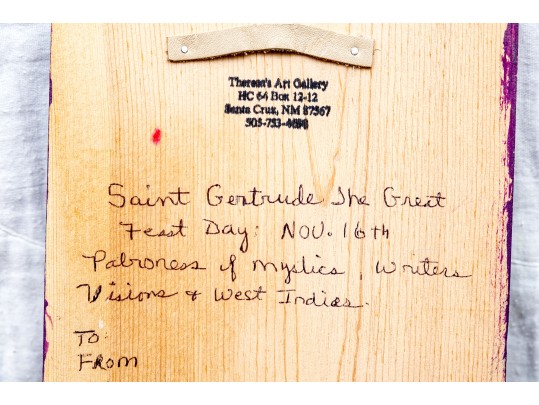 Theresa's Art Gallery
HC 64 Box 12-12
Santa Cruz, NM 87567
505-753-
Saint Gertrude The Great
Feast Day: NOV. 16th
Patroness of mystics, Writers
Visions & West Indias.
To
From